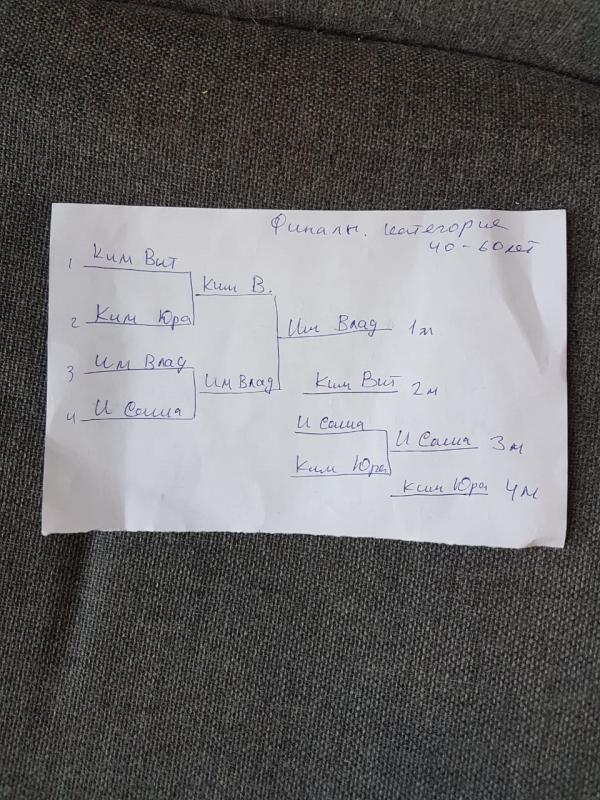 Финальн. категория
40-60 лет
1 Ким Вит
Ким В.
2 Ким Юра
Им Влад 1м
3 Им Влад
Им Влад
4 И Саша
Ким Вит 2м
И Саша
И Саша 3м
Ким Юра
Ким Юра 4м